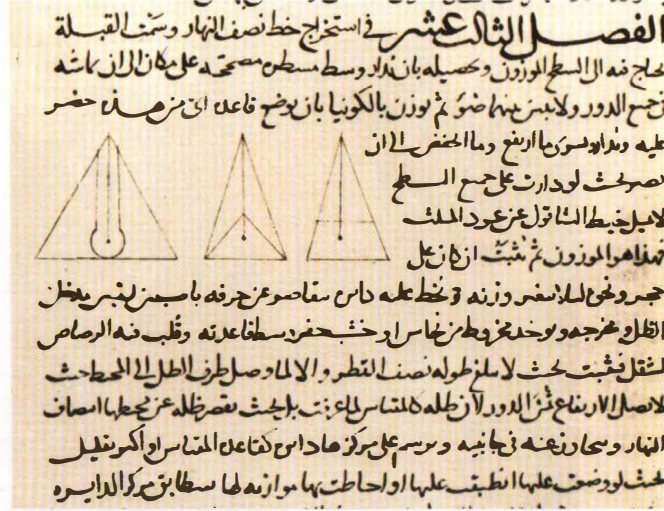 الفصل الثالث عشر في استخراج خط نصف النهار وسمت القبلة
يحتاج فيه الى السطح الموزون وتحصيله بان تدار وسط مسطره مصححه على مكان الى ان تماسه
جميع الدور ولا يبين بينهما ضوء ثم يوزن بالكونيا بان يوضع قاعدة اى من هذه حضر
عليه وتدار ويسوى ما ارتفع وما انخفض الى ان
تصير بحيث لو دارت على جميع السطح
لا يميل خيط الشاقول عن عمود المثلث
فهذا هو الموزون ثم يثبت ان كان على
حجر ونحوه لئلا يتغير وزنه ويخط عليه دايره
الظل ومخرجه ويوخذ مخروط من نحاس او خشب وسط قاعدته وقلب فيه الرصاص
لشقل فيثبت بحيث لا يبلغ طوله نصف القطر والا لما وصل طرف الظل الى المحيط حيث
لا تصل الارتفاع الدور لان ظله كالمقياس لما عرفت بل بحيث يقصر ظله عن محيطها انصاف
النهار ويتجاوز عنه في جانبيه ويرسم على مركزها داىرة كقاعدة المقياس او اكبر بقليل
بحيث لو وضعت عليها انطبقت عليها او احاطت بها موازية لها ليطابق مركز الدايره